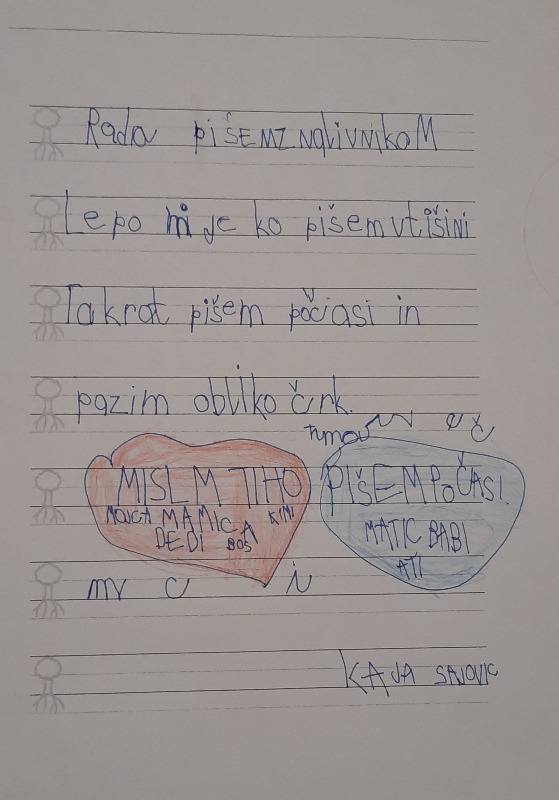 Rada pišEMZ NalivnikoM
Lepo mi je ko pišem vtišini
Takrat pišem počiasi in
pazim obliko črk.
MISLM TIHO
PIŠEM POČASI.
MOJCA MAMICA KIMI
DEDI BOS
MATIC BABI
ATI
KAJA SAJOVIC